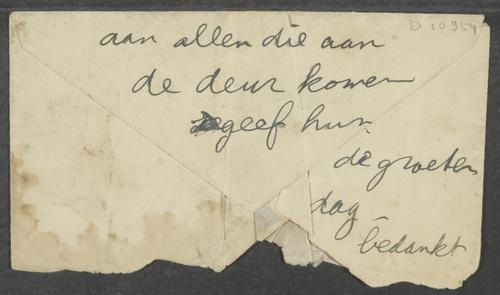 D 10954
aan allen die aan
de deur komen
geef hun
de groeten
dag
bedankt